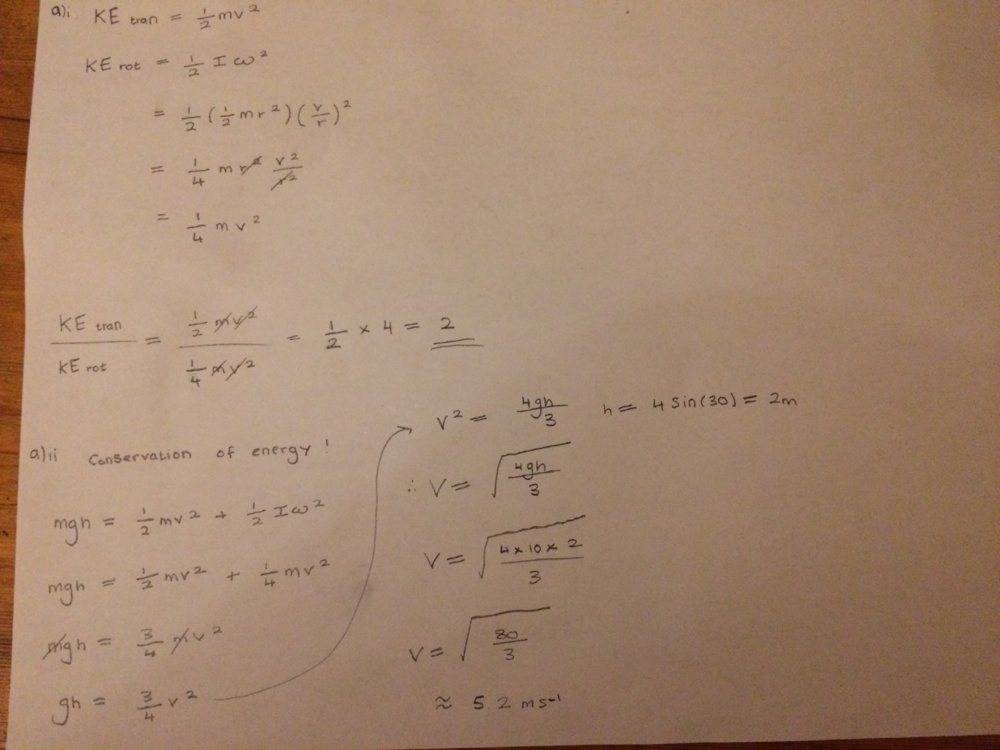 a)i KE tran = 1/2 mv²
KE rot = 1/2 I ω²
= 1/2 (1/2 mr²)(v/r)²
= 1/4 m r² v²/r²
= 1/4 m v²
KE tran / KE rot = 1/2 mv² / 1/4 mv² = 1/2 × 4 = 2
a)ii Conservation of energy !
mgh = 1/2 mv² + 1/2 Iω²
mgh = 1/2 mv² + 1/4 mv²
mgh = 3/4 mv²
gh = 3/4 v²
v² = 4gh/3 h = 4 Sin(30) = 2m
∴ V = √(4gh/3)
V = √(4 × 10 × 2/3)
V = √(80/3)
≈ 5 2 ms⁻¹